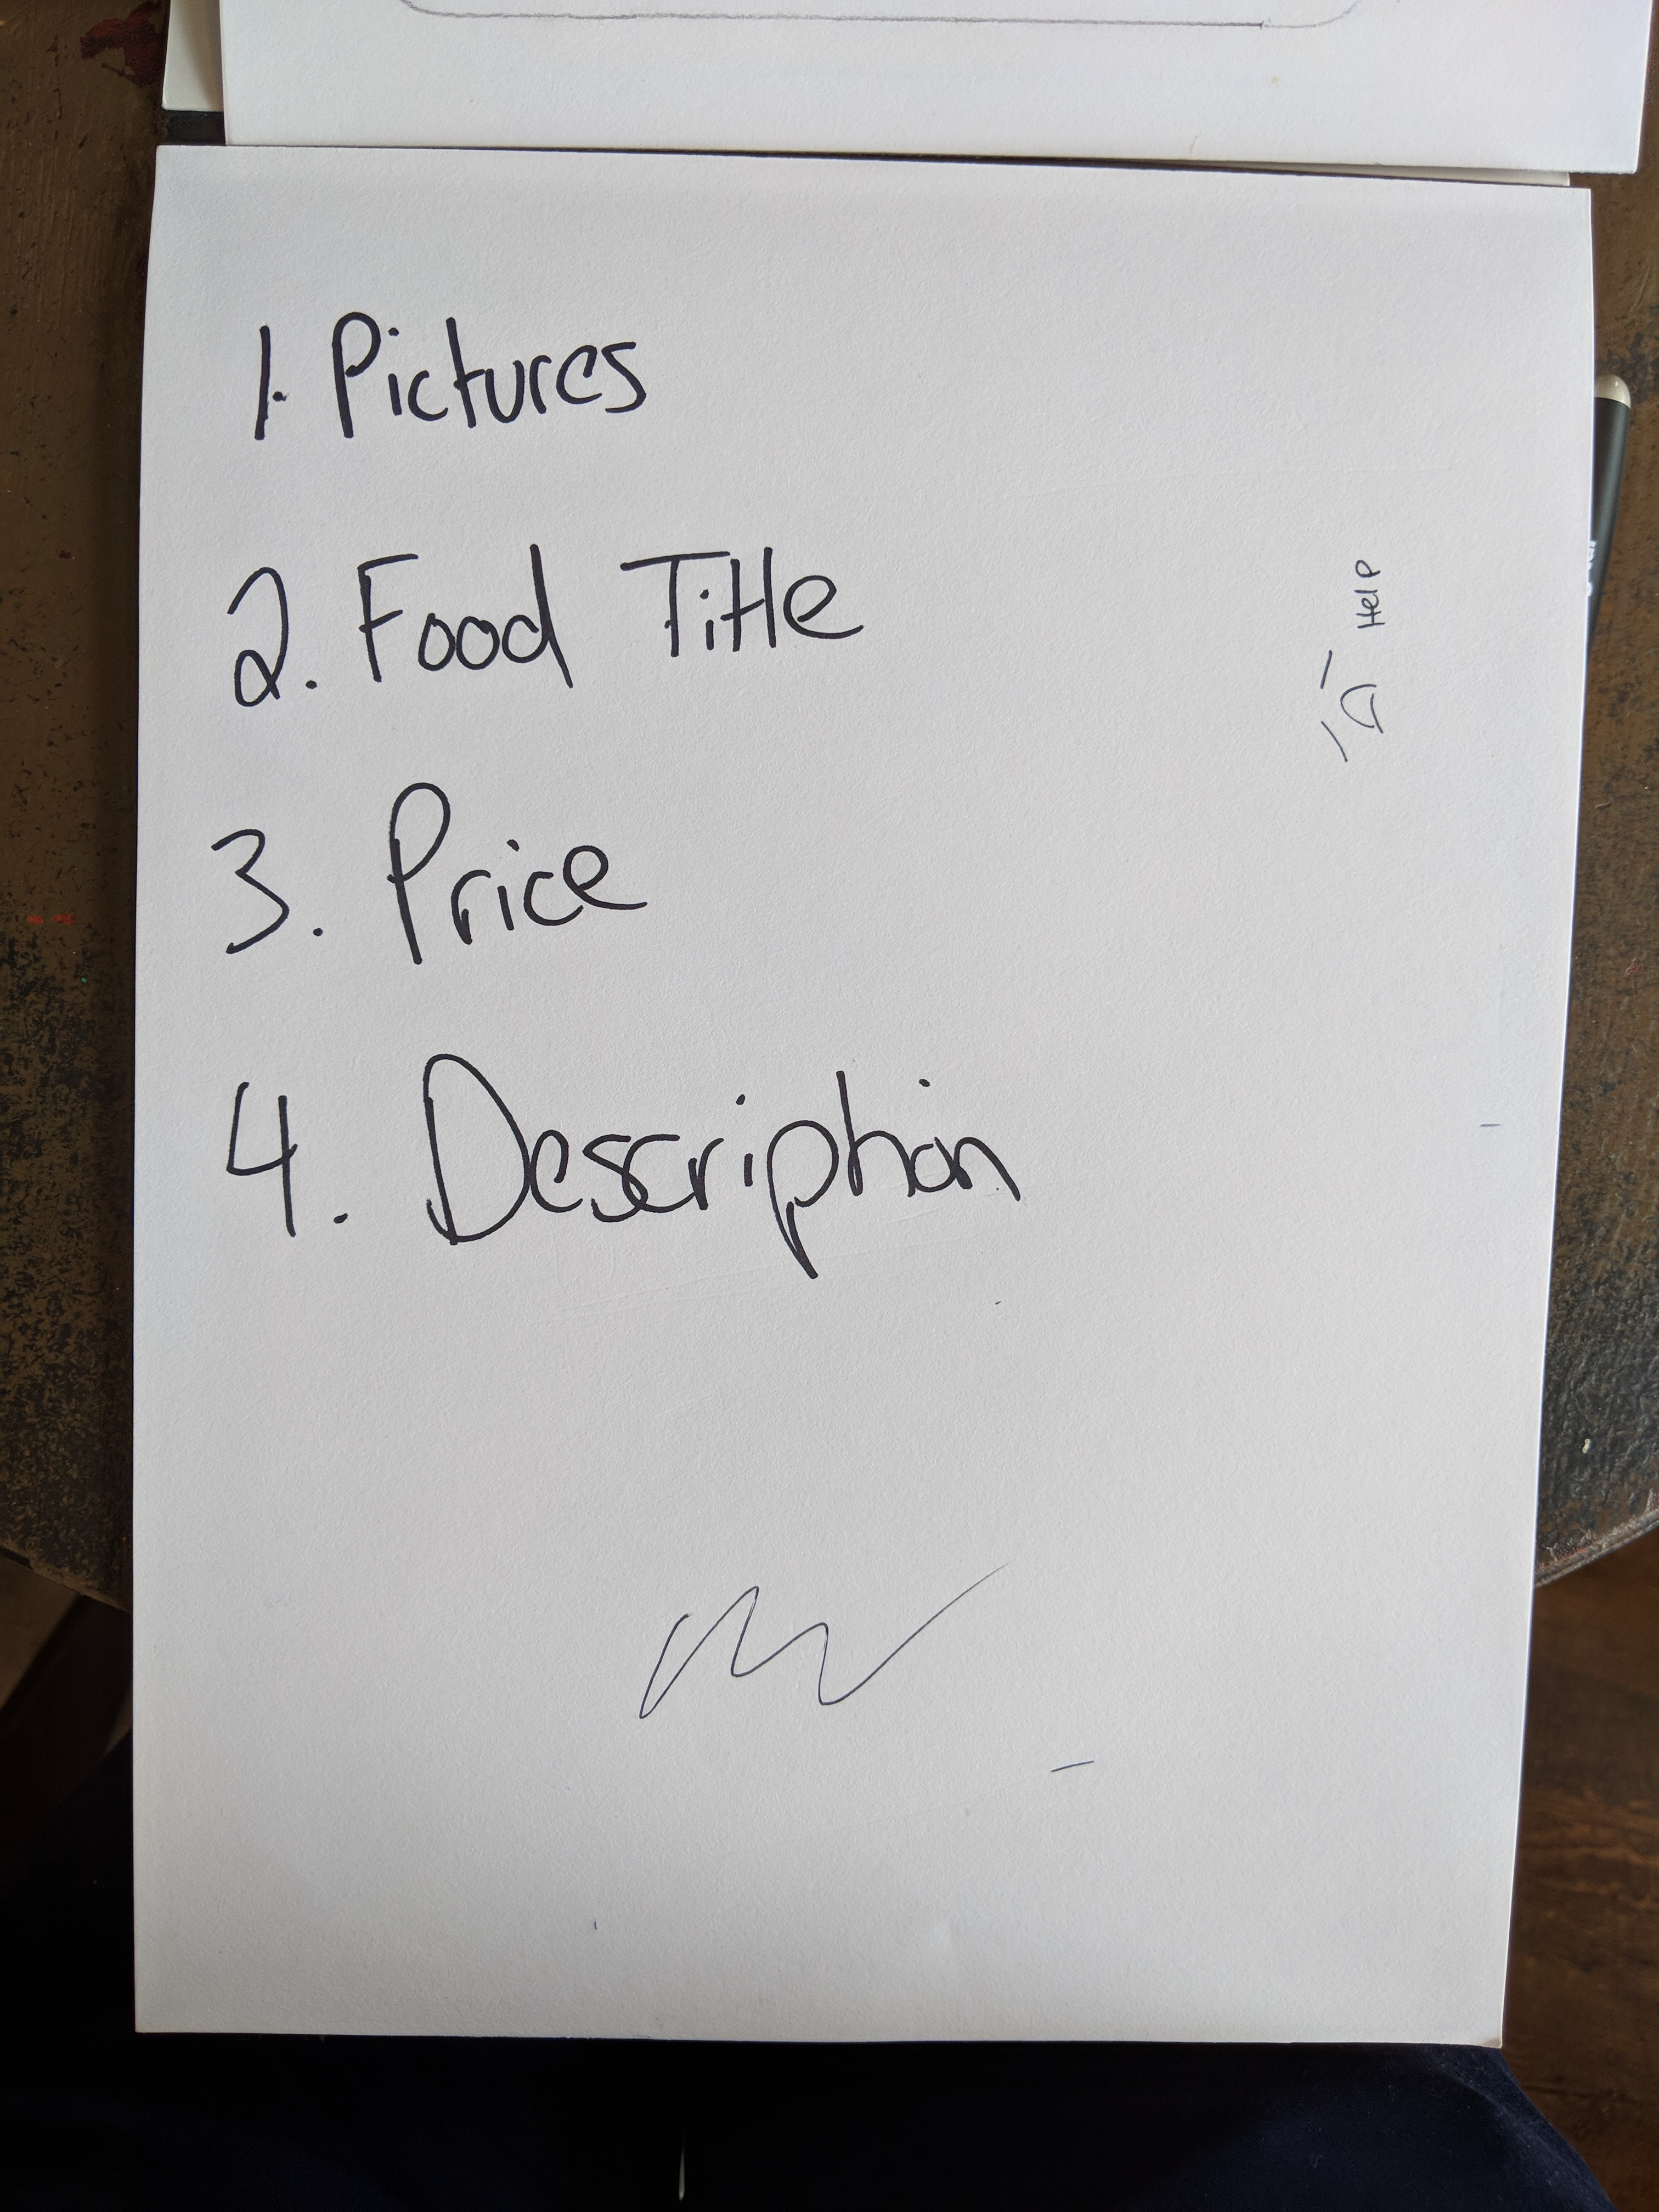 1. Pictures
2. Food Title
Help
3. Price
4. Description